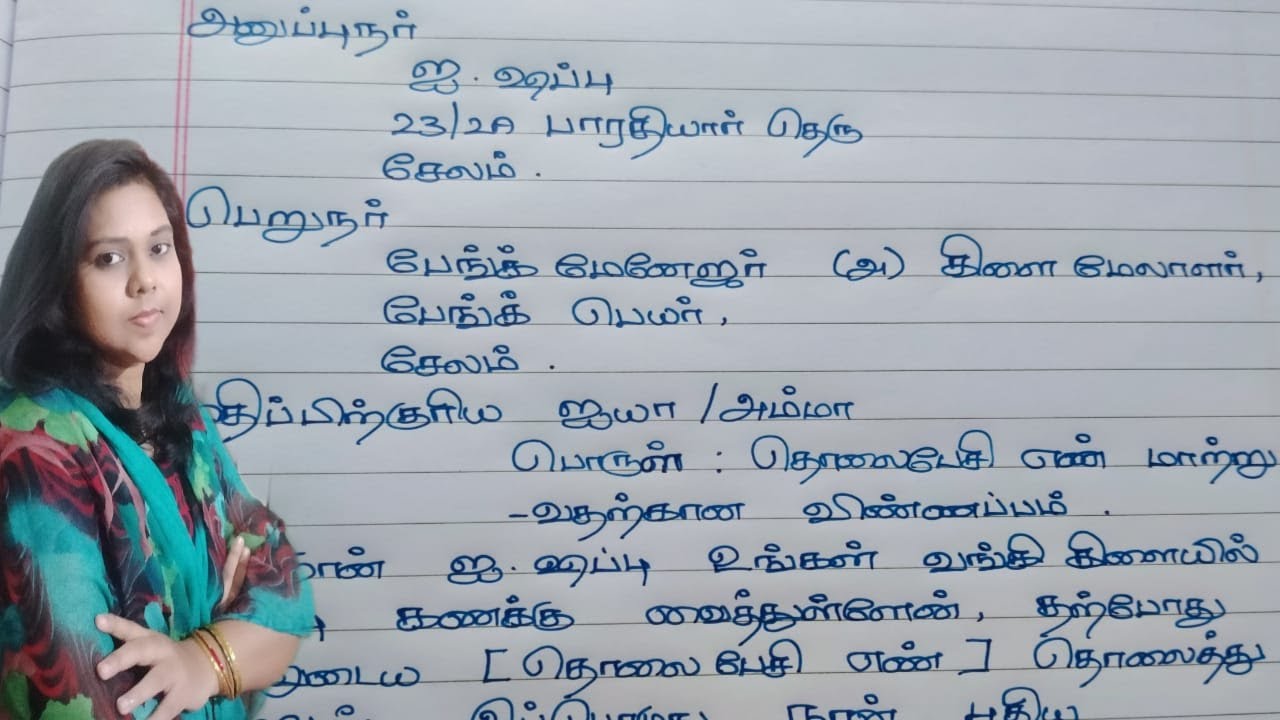 அனுப்புநர்
ஐ. ஷப்பு
23/2A பாரதியார் தெரு
சேலம்.
பெறுநர்
பேங்க் மேனேஜர் (அ) கிளை மேலாளர்,
பேங்க் பெயர்,
சேலம்.
திப்பிற்குரிய ஐயா / அம்மா
பொருள் : தொலைபேசி எண் மாற்று
-வதற்கான விண்ணப்பம்.
ான் ஐ. ஷப்பு உங்கள் வங்கி கிளையில்
கணக்கு வைத்துள்ளேன், தற்போது
னுடைய [தொலைபேசி எண்] தொலைத்து
இப்பொழுது நான் புதிய